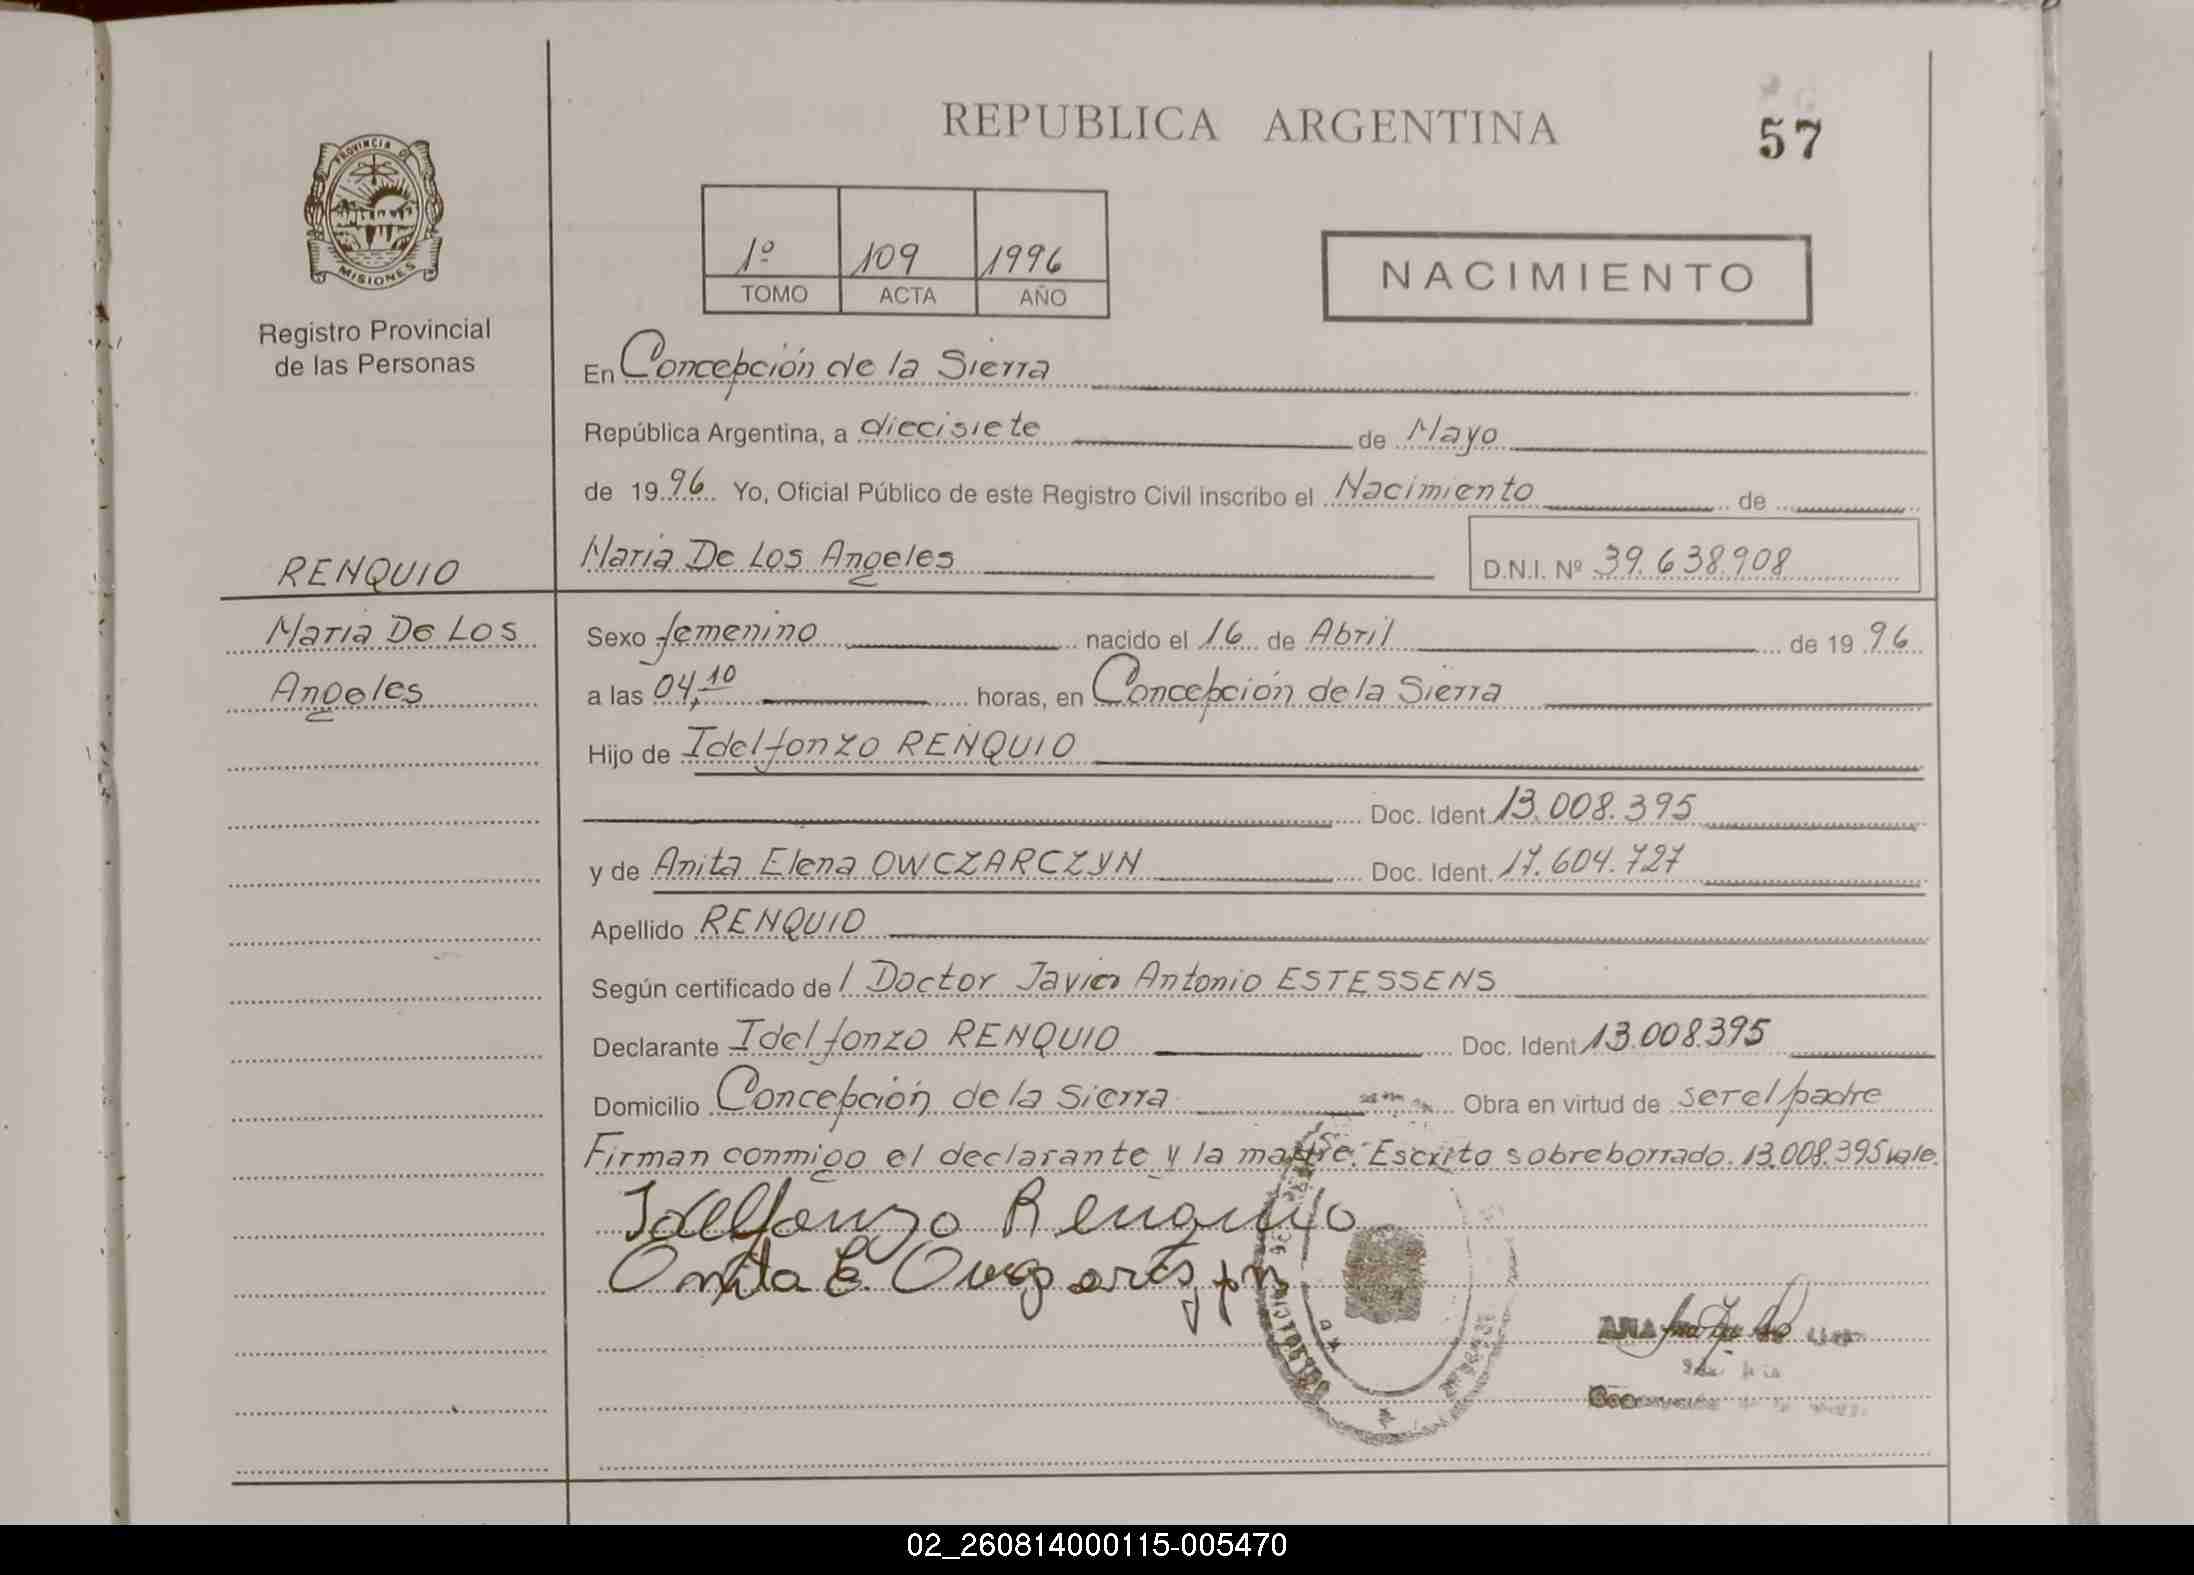 REPUBLICA ARGENTINA
57
PROVINCIA DE
MISIONES
Registro Provincial
de las Personas
1º 109 1996
TOMO ACTA AÑO
NACIMIENTO
En Concepción de la Sierra
República Argentina, a diecisiete de Mayo
de 1996 Yo, Oficial Público de este Registro Civil inscribo el Nacimiento de
RENQUIO
Maria De Los Angeles D.N.I. Nº 39.638.908
Maria De Los
Angeles
Sexo femenino nacido el 16 de Abril de 1996
a las 04,10 horas, en Concepción de la Sierra
Hijo de Idelfonzo RENQUIO
Doc. Ident. 13.008.395
y de Anita Elena OWCZARCZYN Doc. Ident. 17.604.727
Apellido RENQUIO
Según certificado del Doctor Javier Antonio ESTESSENS
Declarante Idelfonzo RENQUIO Doc. Ident 13.008.395
Domicilio Concepción de la Sierra Obra en virtud de ser el padre
Firman conmigo el declarante y la madre. Escrito sobreborrado. 13.008.395 vale.
Idelfonzo Renquio
Anita E.
ANA
02_260814000115-005470